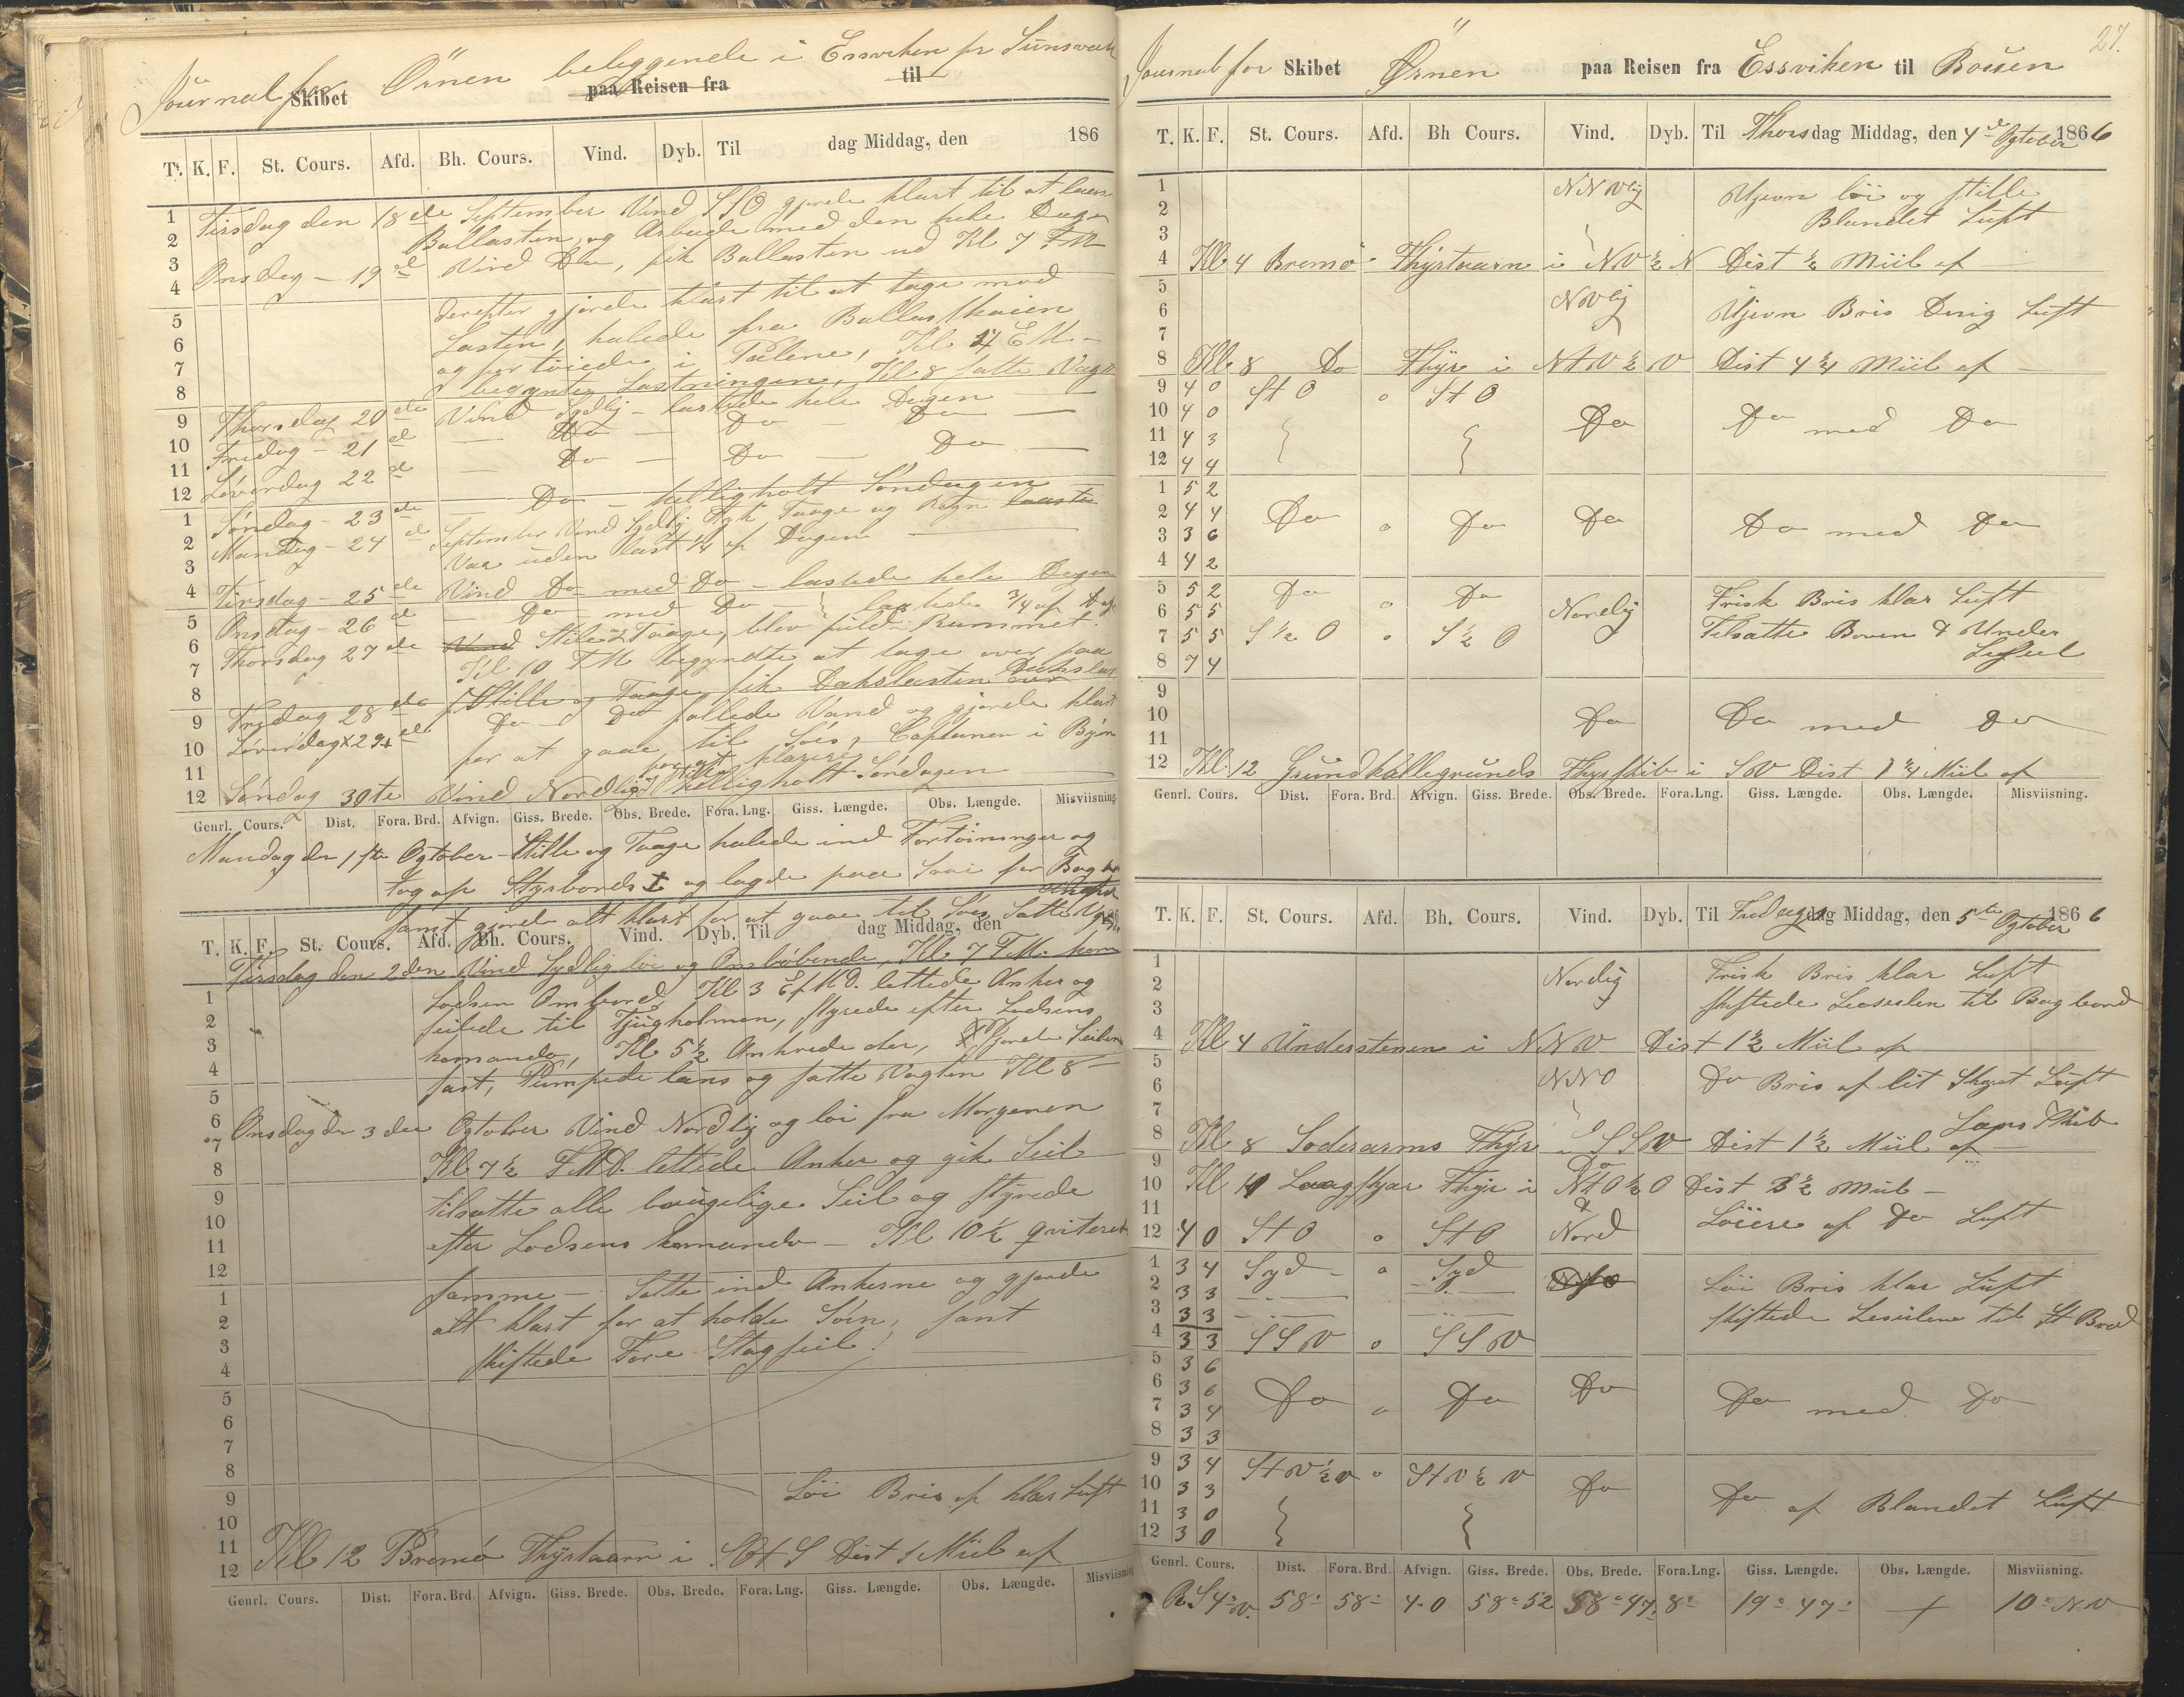 Journal for Skibet Örnen beliggende i Essviken pr Sunsvall
paa Reisen fra til
T. K. F. St. Cours. Afd. Bh. Cours. Vind. Dyb. Til dag Middag, den 186
Tirsdag den 18de September Vind SSO gjorde klart til at losse
Ballasten, og Arbeide med den hele Dagen
Onsdag - 19de Vind Do, fik Ballasten ud Kl 7 FM
derefter gjorde klart til at tage mod
Lasten, halede fra Ballastkaien
og fortöiede i Pælene, Kl 4 EM -
begynte Lastningen, Kl 8 satte Vagt
Thorsdag 20de Vind Sydlig - lastede hele Dagen
Fredag - 21de — Do — Do — Do —
Löverdag 22de — Do — Do — Do —
Söndag - 23de — Do - helligholt Söndagen
Mandag - 24de September Vind Sydlig Tyk Taage og Regn
Var uden last 1/4 af Dagen —
Tirsdag - 25de Vind Do med Do - lastede hele Dagen
Onsdag - 26de — Do med Do — lastede 3/4 af Dag
Thorsdag 27de Vind Stille & Taage, blev fuld Rummet.
Kl 10 FM begyndte at tage over paa
Dækslast
Fredag 28de Stille og Taage fik Dækslasten
Löverdag 29de Do - Do fyllede Vand og gjorde klart
for at gaae til Söes, Captainen i Byen
for at klarere
Söndag 30te Vind Nordlig Stille helligholt Söndagen
Genrl. Cours. Dist. Fora. Brd. Afvign. Giss. Brede. Obs. Brede. Fora. Lng. Giss. Længde. Obs. Længde. Misviisning
Mandag den 1ste Ogtober - Stille og Taage halede ind Fortöininger og
tog op Styrbords og lagde paa Svai for Bagbor
Anker
samt gjorde alt klart for at gaae til Söes Satte Vagt
T. K. F. St. Cours. Afd. Bh. Cours. Vind. Dyb. Til dag Middag, den 186
Tirsdag den 2den Vind Sydlig löi og Omlöbende, Kl 7 FM. kom
Lodsen Ombord Kl 3 EfMD. lettede Anker og
seilede til Tjugholmen, styrede efter Lodsens
komando, Kl 5½ Ankrede der, Gjorde Seilene
fast, Pumpede læns og satte Vagten Kl 8 -
Onsdag den 3die Ogtober Vind Nordlig og löi fra Morgenen
Kl 7½ FMD. lettede Anker og gik Seil
tilsatte alle brugelige Seil og styrede
efter Lodsens komando - Kl 10½ qviterede
samme - Satte ind Ankerne og gjorde
alt klart for at holde Söen, samt
skiftede Fore Stagseil.
Löi Bris af klar Luft
Kl 12 Bremö Fhyrtaarn i SOtS Dist 1 Miil af
Genrl. Cours. Dist. Fora. Brd Afvign. Giss. Brede. Obs. Brede. Fora. Lng. Giss. Længde. Obs. Længde. Misviisning
27.
Journal for Skibet Örnen paa Reisen fra Essviken til Bouen
T. K. F. St. Cours. Afd. Bh Cours. Vind. Dyb. Til Thorsdag Middag, den 4de Ogtober 1866
1 NNVlig Ujevn löi og stille
2 Blandet Luft
3
4 Kl 4 Bremö Fhyrtaarn i NV½N Dist ½ Miil af
5 NVlig
6 Ujevn Bris Disig Luft
7
8 Kl 8 Do Fhyr i NtV½V Dist 4¼ Miil af -
9 4 0 StO o StO
10 4 0 Do Do med Do
11 4 3
12 4 4
1 5 2
2 4 4 Do o Do Do Do med Do
3 3 6
4 4 2
5 5 2 Do o Do Frisk Bris klar Luft
6 5 5 Nordlig
7 5 5 S½O o S½O Tilsatte Boven & Under
8 7 4 Læseil
9
10 Do Do med Do
11
12 Kl. 12 Grundkallegrunds Fhyrskib i SV Dist 1¼ Miil af
Genrl. Cours. Dist. Fora. Brd. Afvign. Giss. Brede. Obs. Brede. Fora. Lng. Giss. Længde. Obs. Længde. Misviisning.
T. K. F. St. Cours. Afd. Bh. Cours. Vind. Dyb. Til Fredag dag Middag, den 5te Ogtober 1866
1 Frisk Bris klar Luft
2 Nordlig
3 skiftede Læseilen til Bagbord
4 Kl 4 Understenen i NNV Dist 1½ Miil af
5 NNO Do Bris af lit Skyet Luft
6
7 Læns Skib
8 Kl 8 Soderarms Fhyr i SSV Dist 1½ Miil af -
9 Do
10 Kl 11 Laagskjær Fhyr i NtO½O Dist 3½ Miil -
11 &
12 4 0 StO o StO Nord Löiere af Do Luft
1 3 4 Syd o Syd Löi Bris klar Luft
2 3 3
3 3 3 skiftede Leseilene til St Bord
4 3 3 SSV o SSV
5 3 6
6 3 6 Do o Do Do Do med Do
7 3 4
8 3 3
9 3 4 StV½V o StV½V
10 3 3 Do Do af Blandet Luft
11 3 0
12 3 0
Genrl. Cours. Dist. Fora. Brd. Afvign. Giss. Brede. Obs. Brede. Fora. Lng. Giss. Længde. Obs. Længde. Misviisning.
R S 4° V. 58' 58' 4.0 58° 52 58° 47' 8' 19° 47' + 10° NV